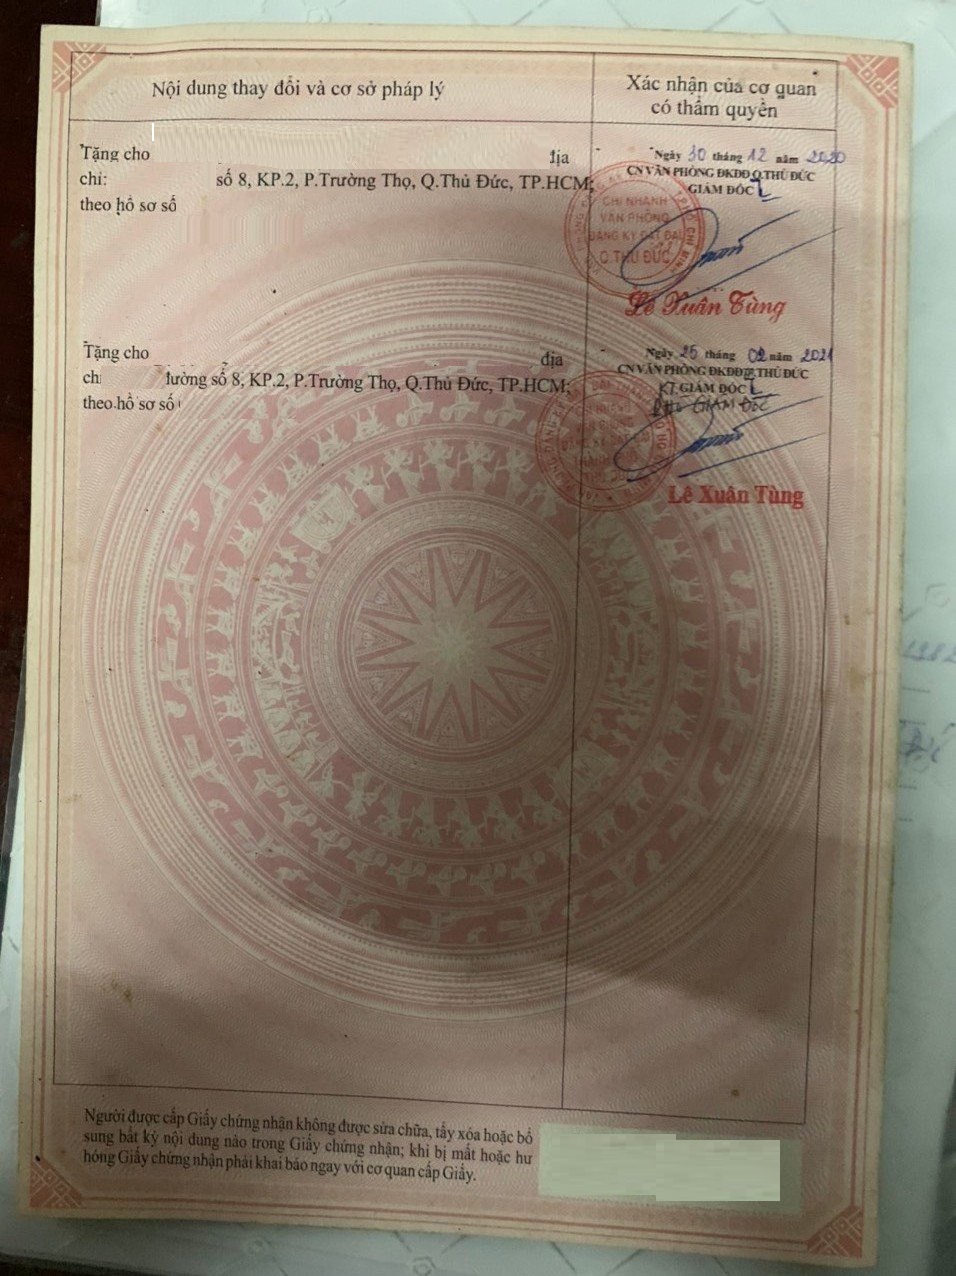 Nội dung thay đổi và cơ sở pháp lý
Xác nhận của cơ quan
có thẩm quyền
Tặng cho địa
chỉ: số 8, KP.2, P.Trường Thọ, Q.Thủ Đức, TP.HCM;
theo hồ sơ số
Ngày 30 tháng 12 năm 2020
CN VĂN PHÒNG ĐKĐĐ Q.THỦ ĐỨC
GIÁM ĐỐC
CHI NHÁNH
VĂN PHÒNG
ĐĂNG KÝ ĐẤT ĐAI
Q.THỦ ĐỨC
Lê Xuân Tùng
Tặng cho địa
đường số 8, KP.2, P.Trường Thọ, Q.Thủ Đức, TP.HCM;
theo hồ sơ số
Ngày 25 tháng 02 năm 2021
CN VĂN PHÒNG ĐKĐĐ TP.THỦ ĐỨC
KT GIÁM ĐỐC
PHÓ GIÁM ĐỐC
Lê Xuân Tùng
Người được cấp Giấy chứng nhận không được sửa chữa, tẩy xóa hoặc bổ
sung bất kỳ nội dung nào trong Giấy chứng nhận; khi bị mất hoặc hư
hỏng Giấy chứng nhận phải khai báo ngay với cơ quan cấp Giấy.